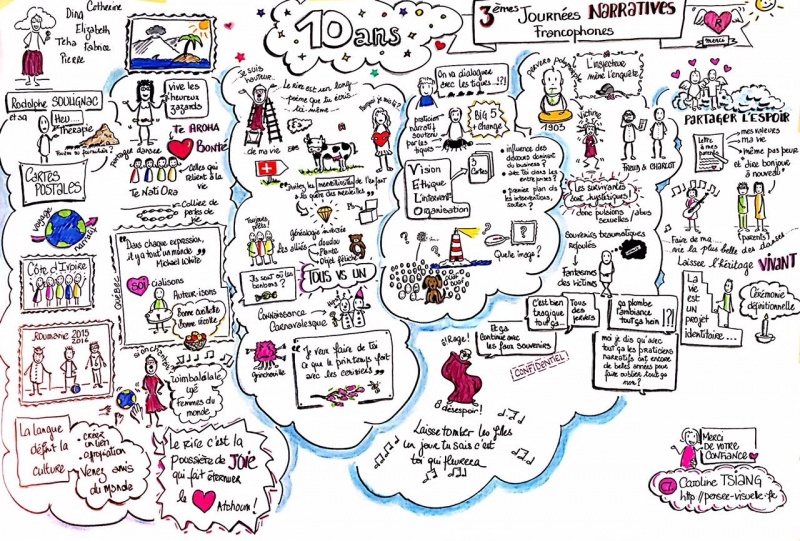 Dina Catherine
Elizabeth
Fabrice
Pierre
10 ans
3èmes Journées NARRATIVES
Francophones
merci
Rodolphe SOULIGNAC
et sa
Heu....
Thérapie
CARTES
POSTALES
VOYAGE
Côte d'Ivoire
Roumanie 2015
2016
La langue
définit la
culture
créer
un lien
Venez amis
du Monde
Vive les
heureux
zazards
Te AROHA
Bonté
partager
danser
Celles qui
relient à la
vie
Te Nati Ora
Collier de
perles de
vie
Dans chaque expression,
il y a tout un monde
Michael White
QUÉBEC
SOI cialisons
Auteur-isons
Bonne cueillette
Bonne récolte
Femmes du
monde
Le Rire c'est la
poussière de JOIE
qui fait éternuer
le
Atchoum !
Je suis
hauteur...
de ma vie
Le rire est un long
poème que tu écris
toi-même...
Bonjour je m'aime
Suites les merveilleuses de l'enfant
à la quête des merveilles
Toujours
plus !
généalogie inversée
les alliés
doudou
Plante
Objet fétiche
Ils sont où les
bonbons ?
TOUS VS UN
Connaissance
Carnavalesque
Grincheville
Je veux faire de toi
ce que le printemps fait
avec les cerisiers
On va dialoguer
avec les tiques...!?!
praticien
narratif
soutenu
par les
tiques
BIG 5
+ change
Vision
Ethique
L'intervent
Organisation
3
Cartes
influence des
discours dominant
du business ?
avec toi dans les
entreprises ?
premier plan de
les interventions,
sortir ?
ouaf
ouaf
Quelle image ?
pervers polymorphe
1903
L'inspecteur
mène l'enquête
Victime
FREUD & CHARCOT
Les survivantes
sont hystériques !
donc pulsions sexuelles/abus
sexuelles
Souvenirs traumatiques
refoulés
Fantasmes
des victimes
C'est bien
tragique
tout ça...
Tous
des
pervers
ça plombe
l'ambiance
tout ça hein !?!
Et ça
continue avec
les faux souvenirs
moi je dis qu'avec
tout ça les praticiens
narratifs ont encore
de belles années pour
faire oublier tout ça
non ?
CONFIDENTIEL !
Ô Rage !
Ô désespoir !
Laisse tomber les filles
un jour tu sais c'est
toi qui pleurera
PARTAGER L'ESPOIR
Lettre à
mes parents
mes valeurs
ma vie
même pas peur
et dire bonjour
à nouveau
(parents)
Faire de ma
vie la plus belle des danses
Laissez l'héritage VIVANT
La
vie
est
un
projet
identitaire...
Cérémonie
définitionnelle
Merci
DE VOTRE
CONFIANCE
Caroline TSIANG
http://pensee-visuelle.fr